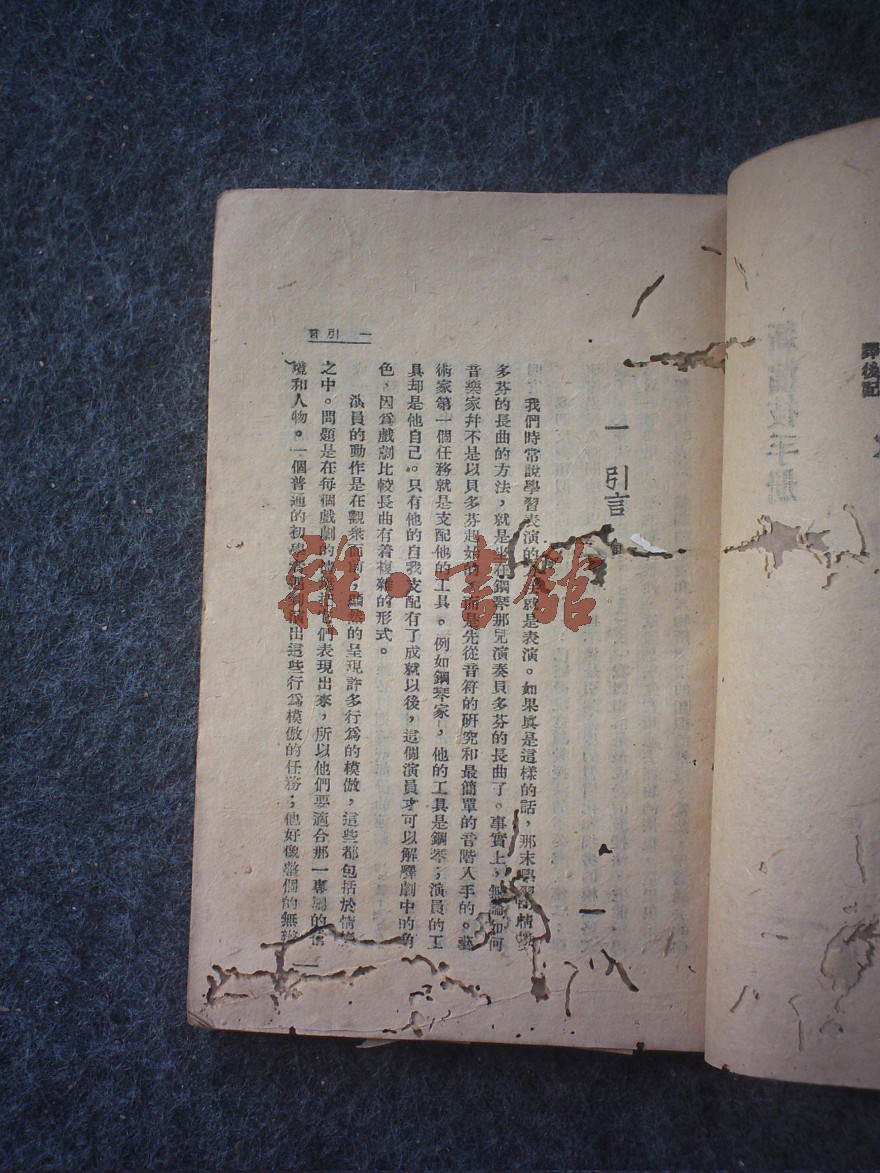 譯後記
一 引言
一
我們時常說學習表演的就是表演。如果眞是這樣的話，那末學習
多芬的長曲的方法，就是坐在鋼琴那兒演奏貝多芬的長曲了。事實上，無論如何
音樂家幷不是以貝多芬起始的，而是先從音符的研究和最簡單的音階入手的。藝
術家第一個任務就是支配他的工具。例如鋼琴家，他的工具是鋼琴；演員的工
具却是他自己。只有他的自我支配有了成就以後，這個演員才可以解釋劇中的角
色，因爲戲劇比較長曲有着複雜的形式。
演員的動作是在觀衆面前，顯然的呈現許多行爲的模倣，這些都包括於情
之中。問題是在每個戲劇的們表現出來，所以他們要適合那一專題的
境和人物。一個普通的初學演出這些行爲模倣的任務；他好像整個的無
一 引言
一
雜·書舘